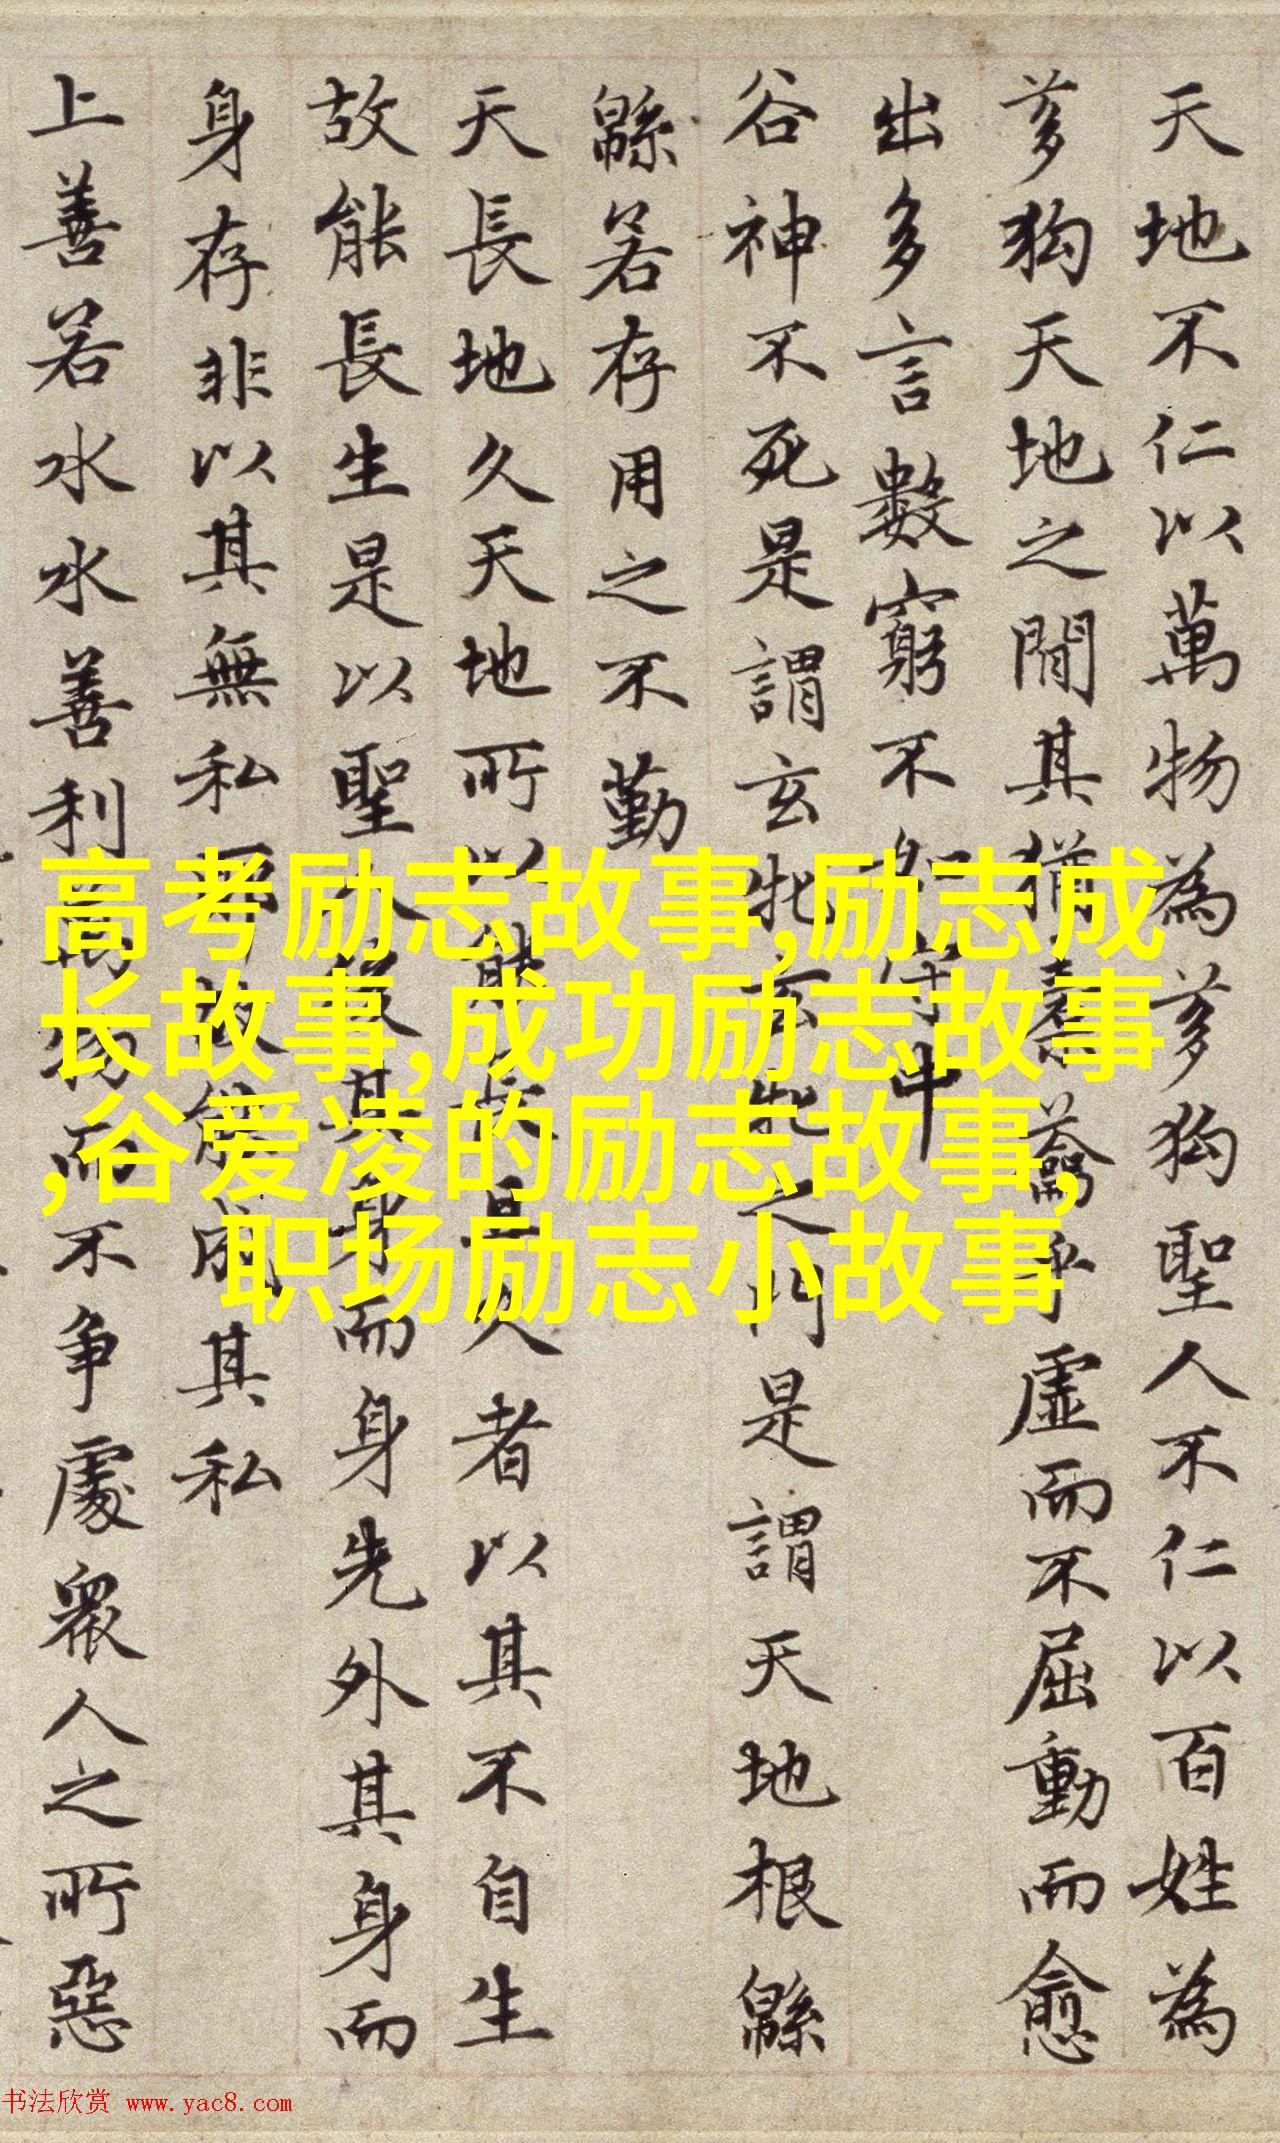 天地不仁以萬物為芻狗聖人不仁以百姓為
芻狗天地之間其猶橐籥乎虛而不屈動而愈
出多言數窮不如守中
谷神不死是謂玄牝玄牝之門是謂天地根緜
緜若存用之不勤
天長地久天地所以能長且久者以其不自生
故能長生是以聖人後其身而身先外其身而
身存非以其無私耶故能成其私
上善若水水善利萬物而不争處衆人之所惡
高考励志故事,励志成
长故事,成功励志故事
,谷爱凌的励志故事,
职场励志小故事
书法欣赏 www.yac8.com